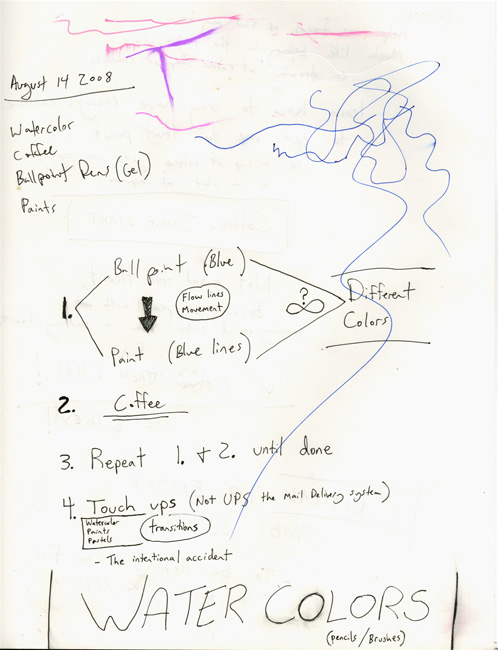 August 14 2008
Watercolor
Coffee
Ballpoint Pens (Gel)
Paints
1.
Ball point (Blue)
Flow lines
Movement
Paint (Blue lines)
?
∞
Different
Colors
2. Coffee
3. Repeat 1. & 2. until done
4. Touch ups (Not UPS the Mail Delivery system)
Watercolor
Paints
Pastels
transitions
- The intentional accident
WATER COLORS
(pencils/Brushes)